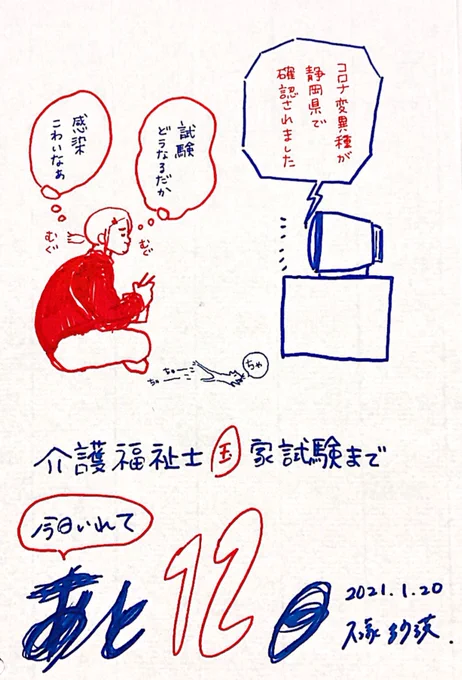 コロナ変異種が
静岡県で
確認されました
試験
どうなるだか
感染
こわいなぁ
むぐ
むぐ
ちゅー
ちゅー
ちゃ
介護福祉士国家試験まで
今日いれて
あと12日
2021.1.20